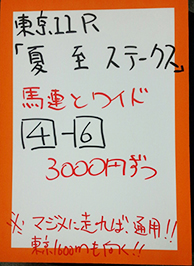 東京11R
「夏至ステークス」
馬連とワイド
4-6
3000円ずつ
※マジメに走れば、通用!!
東京1600mも向く!!